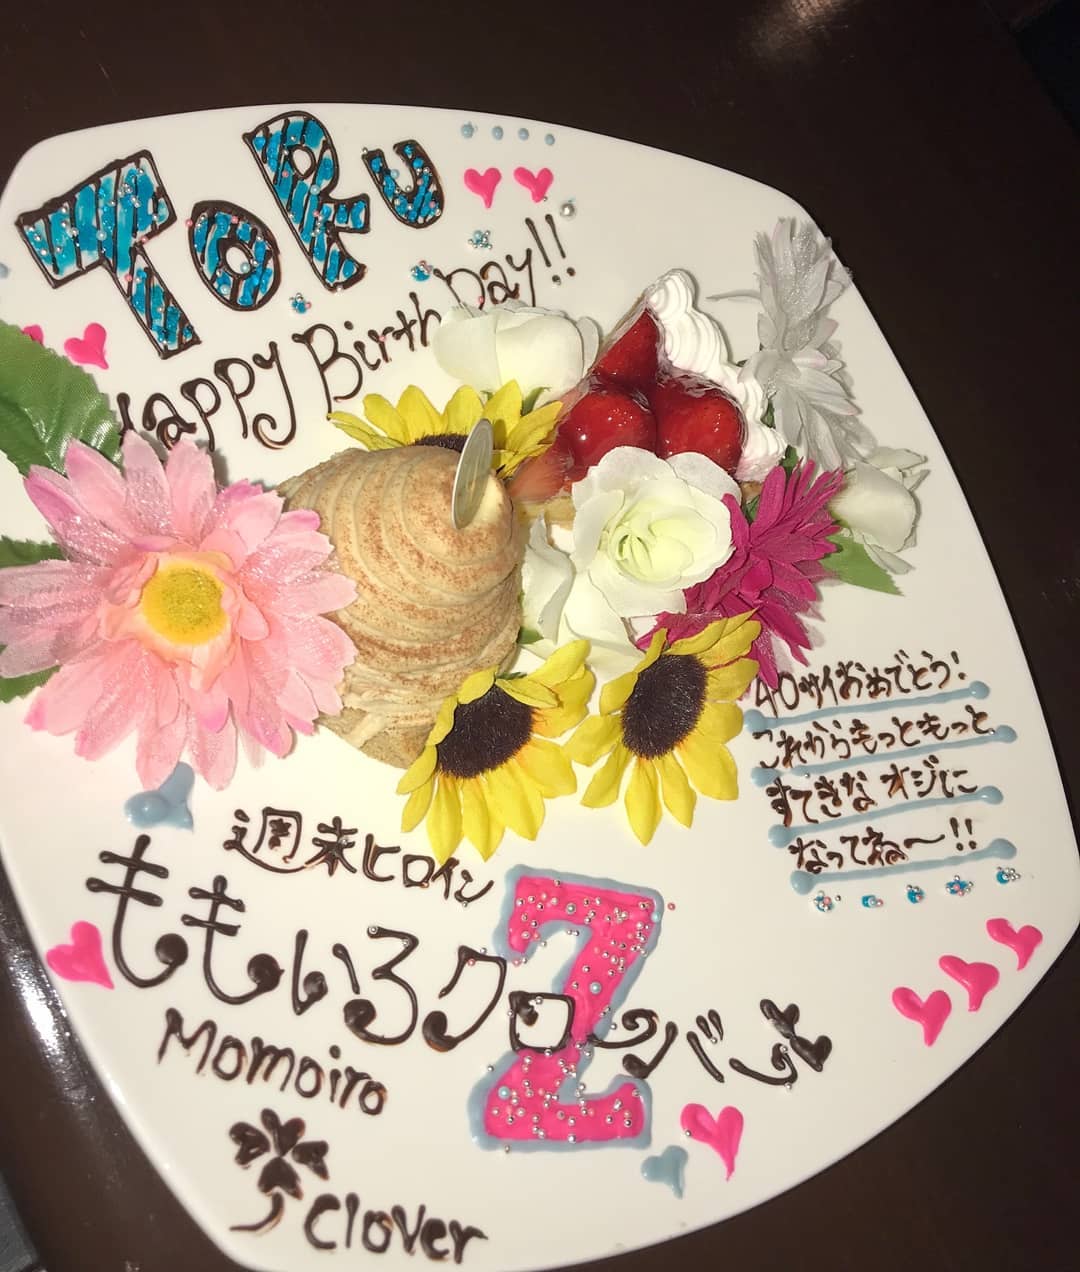 ToRu
Happy Birth Day!!
40サイおめでとう!
これからもっともっと
すてきな オジに
なってね〜!!
週末ヒロイン
ももいろクローバーZ
Momoiro
Clover